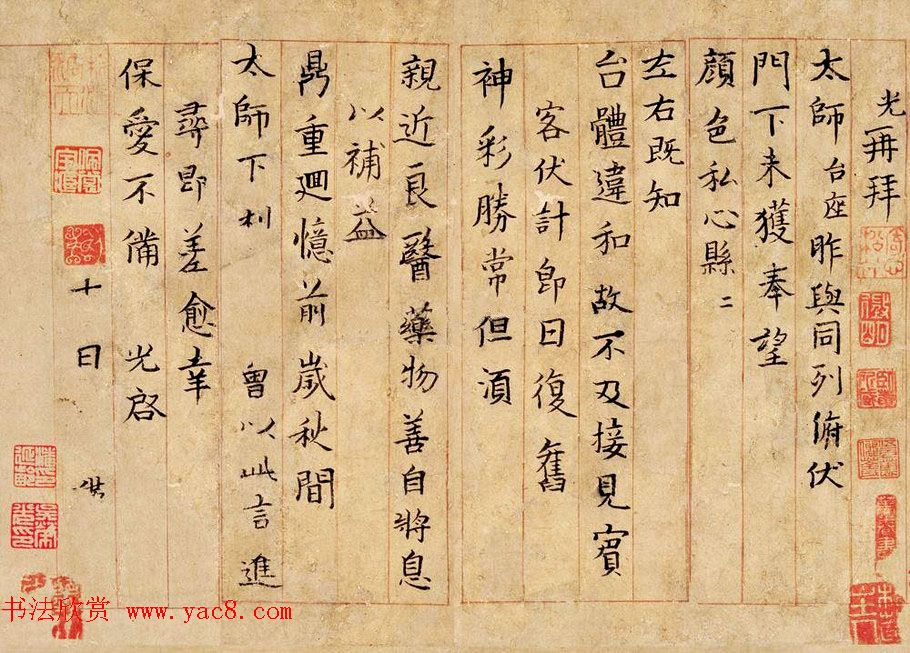 光再拜
太師台座昨與同列俯伏
門下未獲奉望
顏色私心縣〻
左右既知
台體違和故不及接見賓
客伏計即日復舊
神彩勝常但湏
親近良醫藥物善自將息
以補益
鼎重迴憶前歲秋間
太師下利曾以此言進
尋即差愈幸
保愛不備光啓
十日
书法欣赏 www.yac8.com